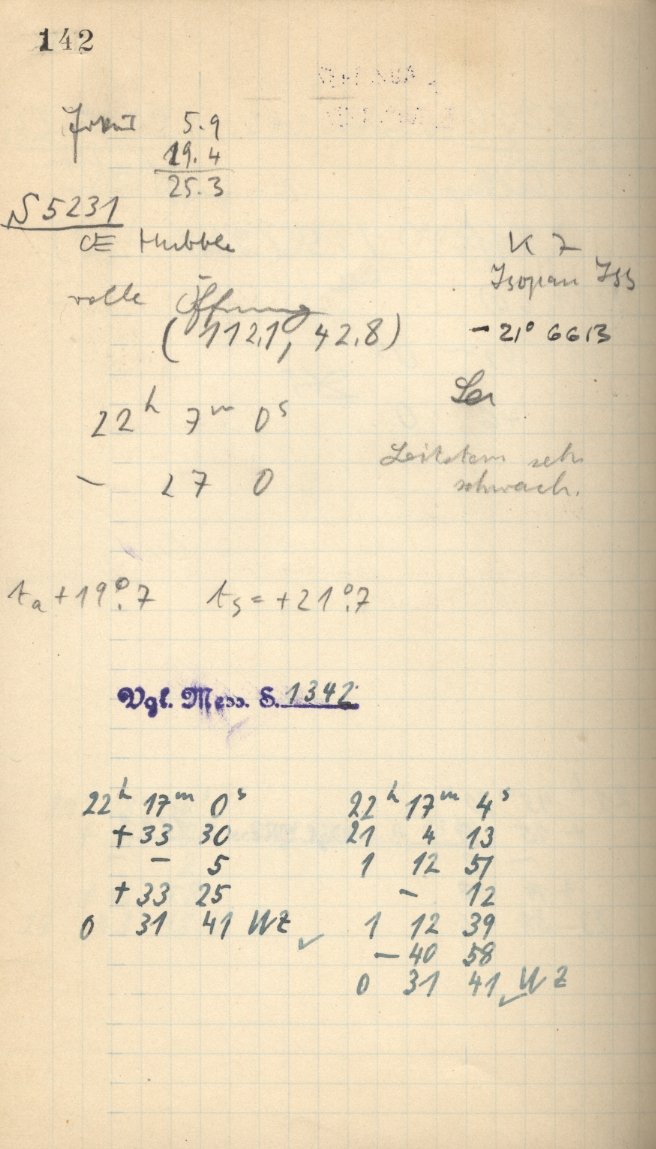 142
5.9
19.4
25.3
S 5231
CE Hubble
K 7
Isopan ISS
volle Öffnung
(112.1, 42.8)
-21° 6613
22h 7m 0s
- 27 0
Leitstern sehr
schwach.
ta +19°.7 ts = +21°.7
Vgl. Mess. S. 1342
22h 17m 0s
+33 30
- 5
+33 25
0 31 41 WZ ✓
22h 17m 4s
21 4 13
1 12 51
- 12
1 12 39
-40 58
0 31 41 ✓ WZ